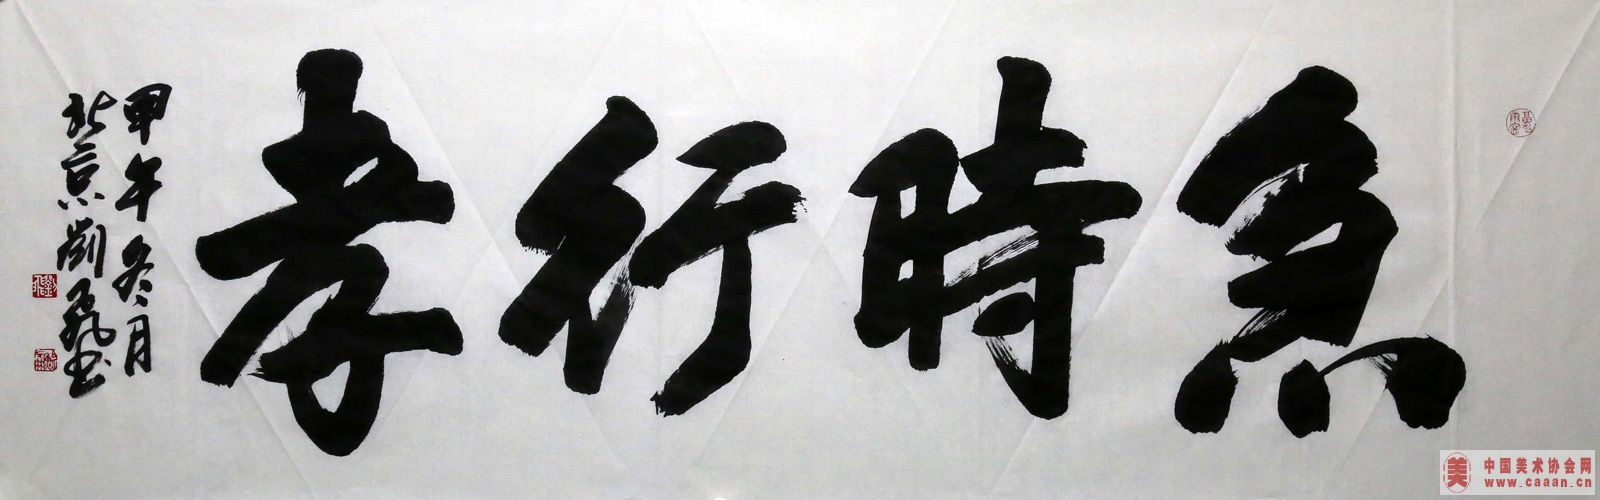 急時行孝
甲午冬月
北京劉
書
中国美术协会网
www.caaan.cn